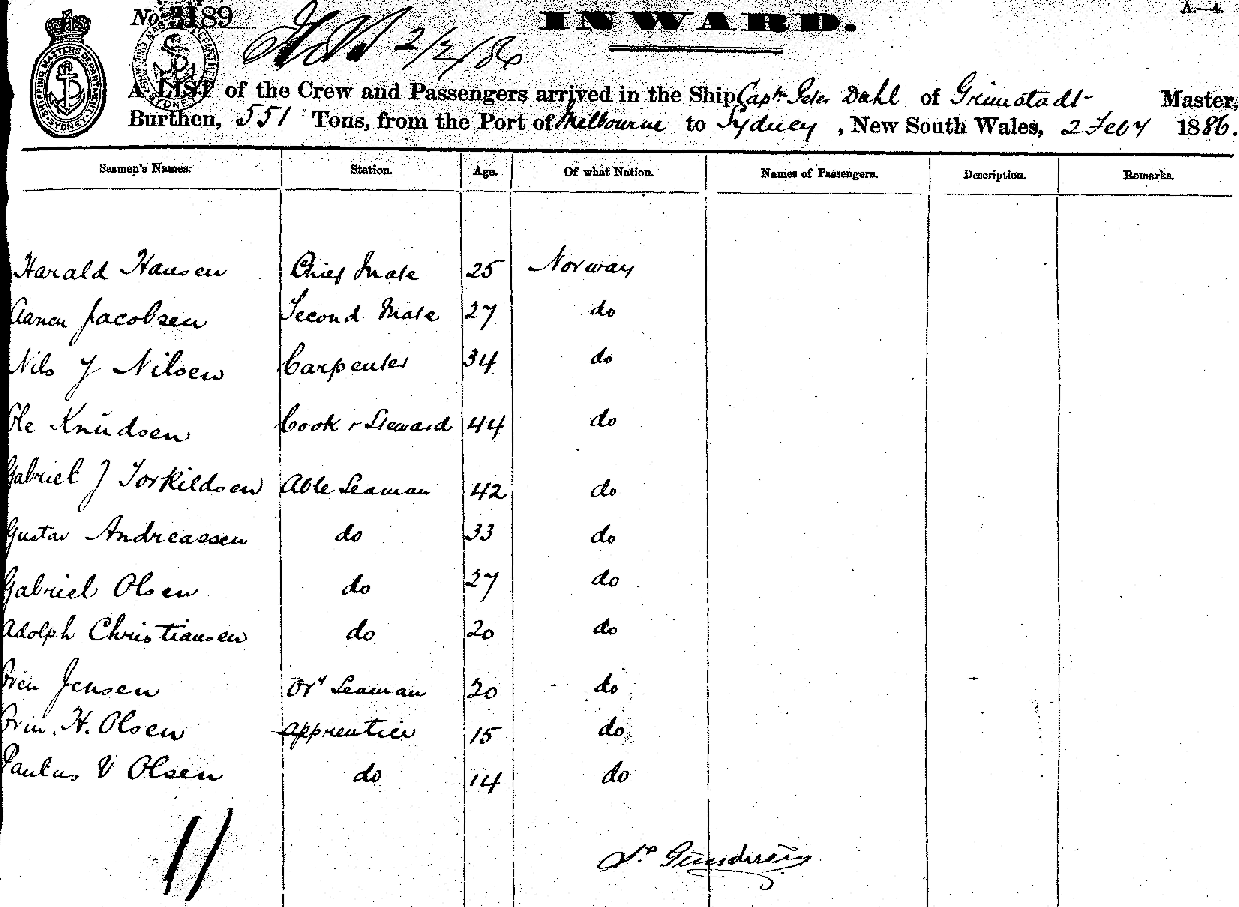 A—4.
No. 3189
INWARD.
2/2/86
A LIST of the Crew and Passengers arrived in the Ship Captn Peter Dahl of Grimstadt Master,
Burthen, 551 Tons, from the Port of Melbourne to Sydney, New South Wales, 2 Feby 1886.
Seamen's Names. Station. Age. Of what Nation. Names of Passengers. Description. Remarks.
Harald Hansen Chief Mate 25 Norway
Aanen Jacobsen Second Mate 27 do
Nils J Nilsen Carpenter 34 do
Ole Knudsen Cook & Steward 44 do
Gabriel J Torkildsen Able Seaman 42 do
Gustav Andreassen do 33 do
Gabriel Olsen do 27 do
Adolph Christiansen do 20 do
Jensen Ory Seaman 20 do
H. Olsen apprentice 15 do
Paulus V Olsen do 14 do
11